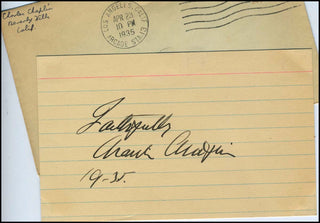 Charles Chaplin
Beverly Hills
Calif.
LOS ANGELES, CALIF.
APR 23
10 PM
1935
ARCADE STA.
Faithfully
Charlie Chaplin
19-35.